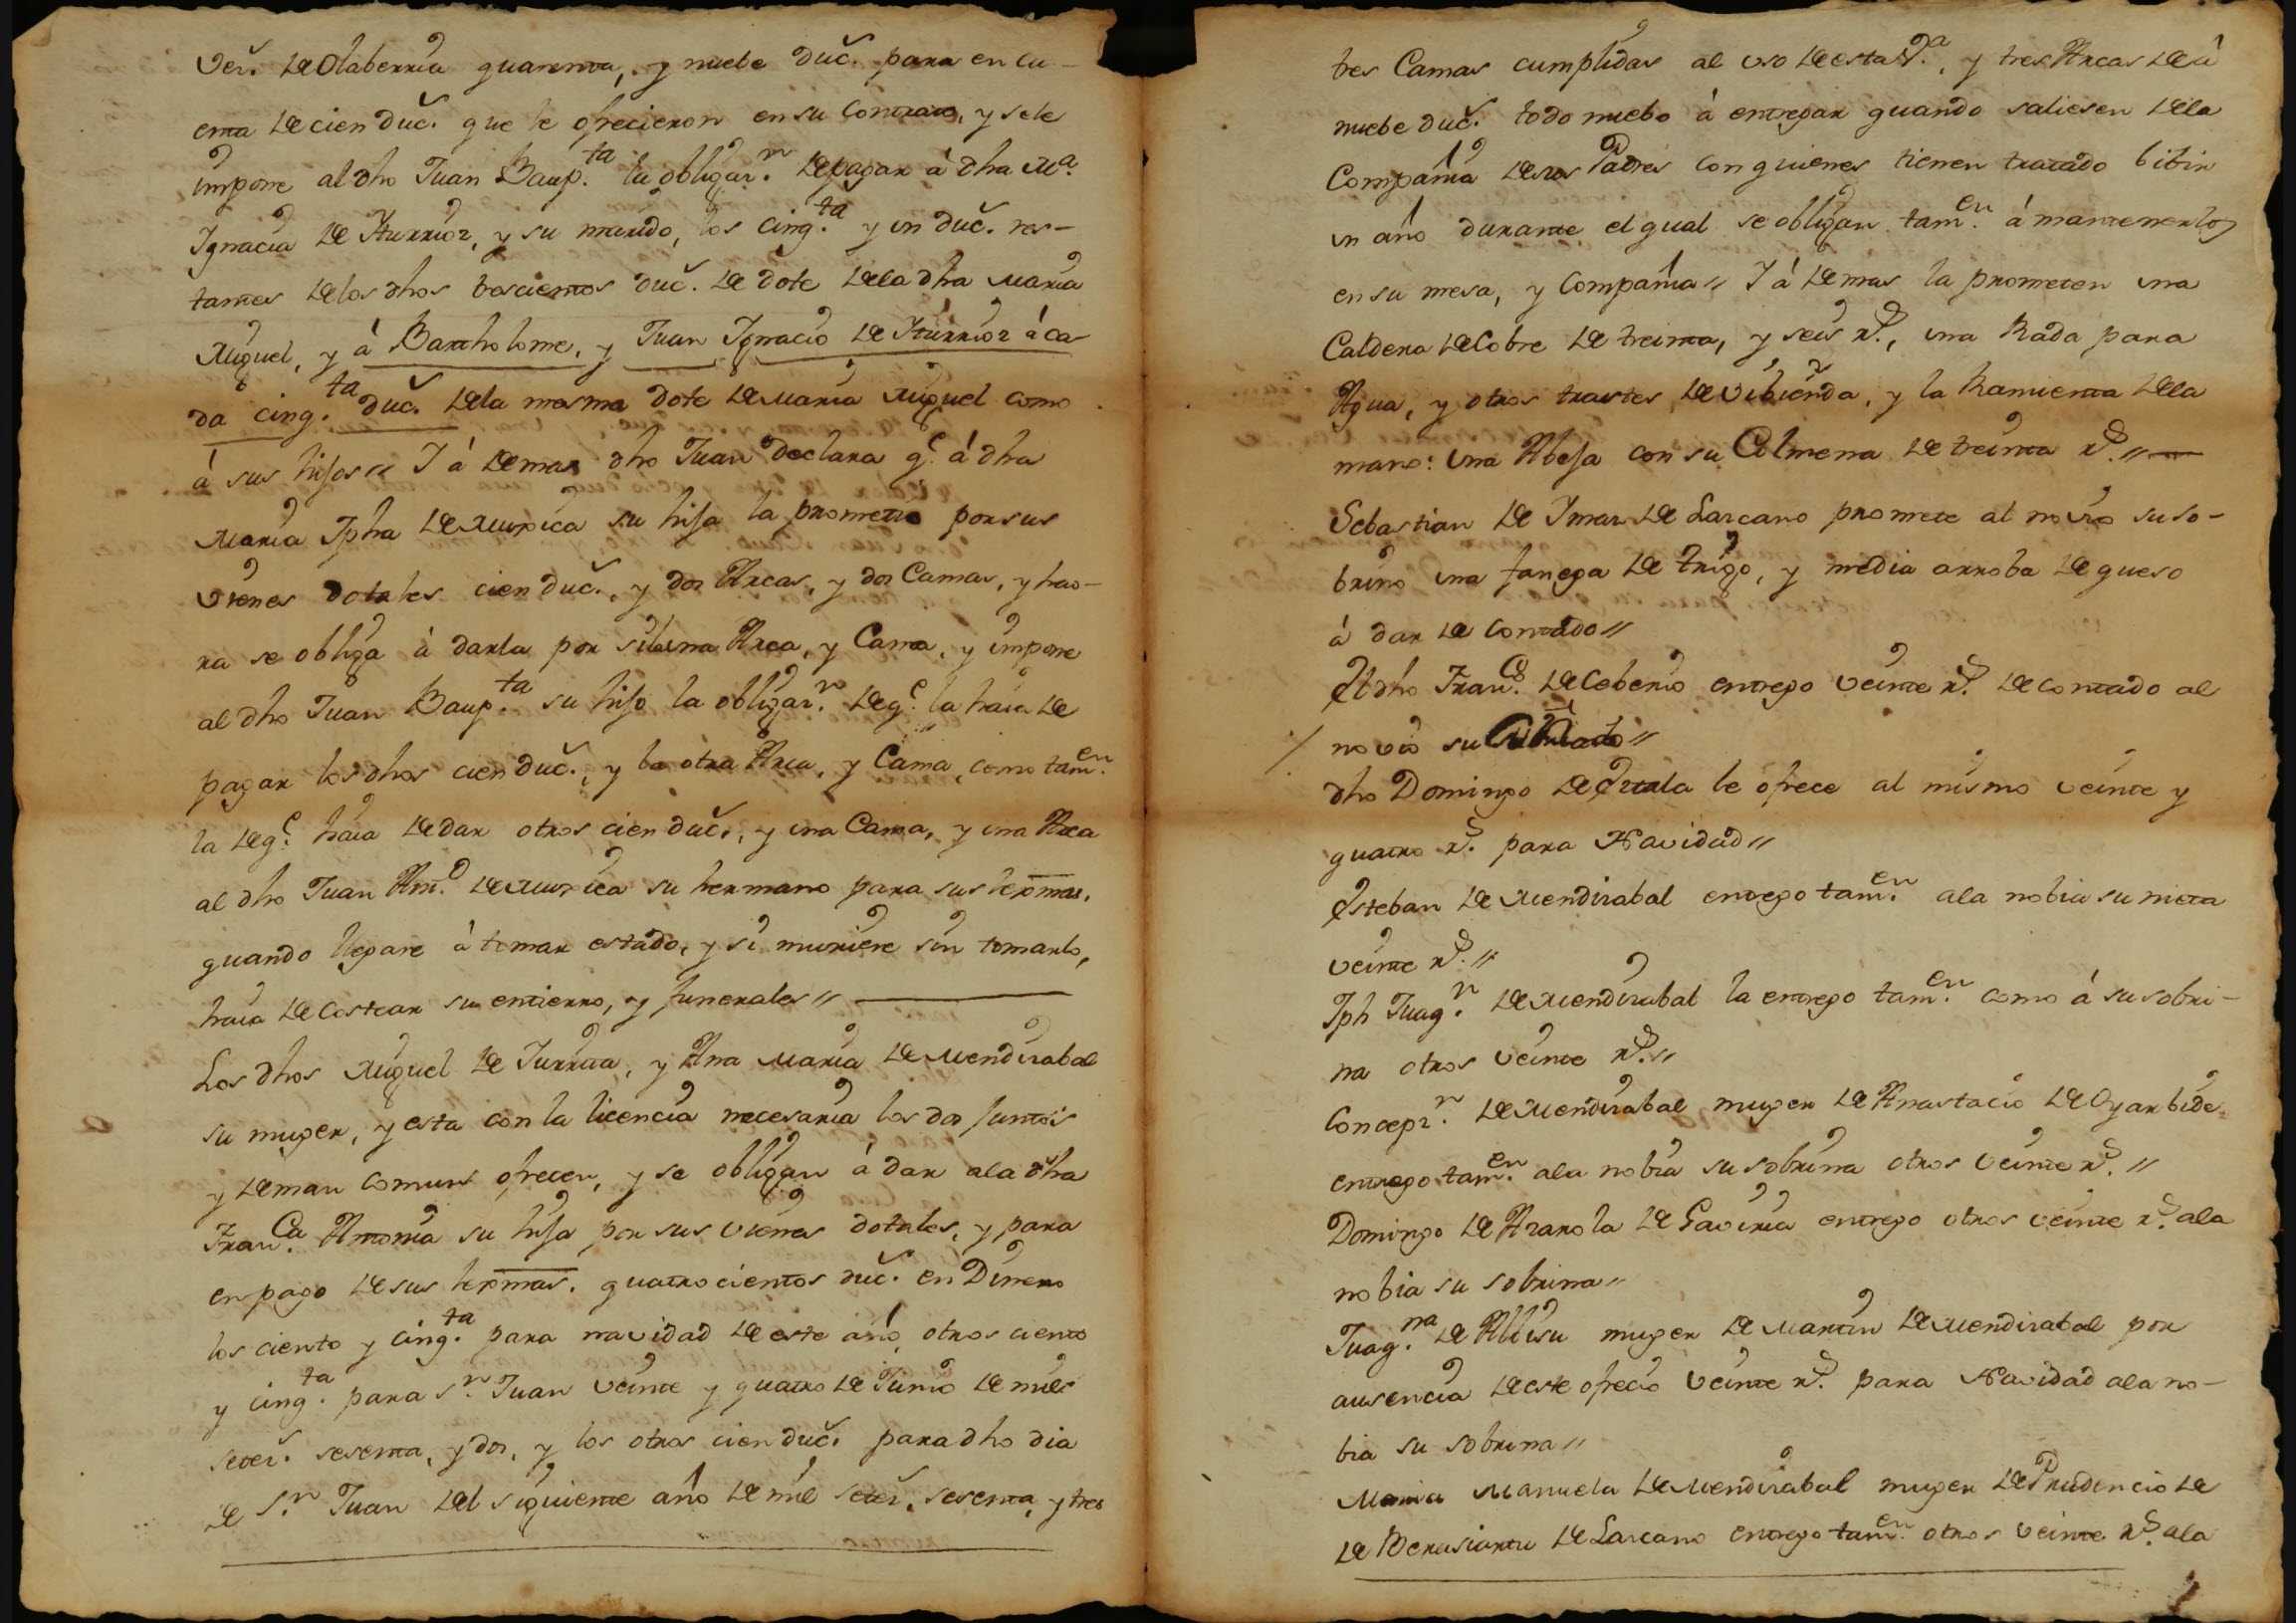 Ver. de Olaberria quarenta, y nuebe duc. para en cu-
enta de cien duc. que le ofrecieron en su Contrato, y se le
impone al dho Juan Baup.ta la obligaz.n de pagar à dha M.a
Ignacia de Iturrioz, y su marido, los cinq.ta y un duc. res-
tantes de los dhos doscientos duc. de dote de la dha Maria
Miguel, y à Bartholome, y Juan Ignacio de Iturrioz à ca-
da cinq.ta duc. de la mesma dote de Maria Miguel como
à sus hijos // I à demas dho Juan declara q.e à dha
Maria Jpha de Murxica su hija la prometio por sus
vienes dotales cien duc., y dos Arcas, y dos Camas, y hao-
ra se obliga à darla por si la una Arca, y Cama, y impone
al dho Juan Baup.ta su hijo la obligaz.n de q.e la haia de
pagar los dhos cien duc., y la otra Arca, y Cama, como tam.en
la de q.e haia de dar otros cien duc., y una Cama, y una Arca
al dho Juan Ant.o de Murxica su hermano para sus lexmas.
quando llegare à tomar estado, y si muriere sin tomarlo,
haia de costear su entierro, y funerales //
Los dhos Miguel de Iurrita, y Ana Maria de Mendizabal
su muger, y esta con la licencia necesaria los dos juntos
y de man comun ofrecen, y se obligan à dar a la dha
Fran.ca Antonia su hija por sus vienes dotales, y para
en pago de sus lexmas. quatrocientos duc. en Dinero
los ciento y cinq.ta para navidad de este año, otros ciento
y cinq.ta para S.n Juan veinte y quatro de Junio de mil
setec. sesenta, y dos, y los otros cien duc. para dho dia
de S.n Juan del siguiente año de mil setec. sesenta, y tres
tres Camas cumplidas al uso de esta V.a, y tres Arcas de à
nuebe duc. todo nuebo à entregar quando saliesen de la
Compañia de sus Padres con quienes tienen tratado bibir
un año durante el qual se obligan tam.en à mantenerlos
en su mesa, y Compañia // I à demas la prometen una
Caldera de Cobre de treinta, y seis r.s, una Rada para
Agua, y otros trastes de vibienda, y la Ramienta de la
mano: una Abeja con su Colmena de treinta r.s //
Sebastian de Imaz de Lazcano promete al novio su so-
brino una fanega de trigo, y media arroba de queso
à dar de contado //
El dho Fran.co de Ceberio entrego veinte r.s de contado al
novio su //
dho Domingo de le ofrece al mismo veinte y
quatro r.s para Navidad //
Esteban de Mendizabal entrego tam.en a la nobia su nieta
veinte r.s //
Jph Juaq.n de Mendizabal la entrego tam.en como à su sobri-
na otros veinte r.s //
Concepz.n de Mendizabal muger de Anastacio de Oyarbide
entrego tam.en a la nobia su sobrina otros veinte r.s //
Domingo de Arakola de Gaviria entrego otros veinte r.s a la
nobia su sobrina //
Juaq.na de Albisu muger de Martin de Mendizabal por
ausencia de este ofrecio veinte r.s para Navidad a la no-
bia su sobrina //
Maria Manuela de Mendizabal muger de Prudencio de
de Berasiartu de Lazcano entrego tam.en otros veinte r.s a la